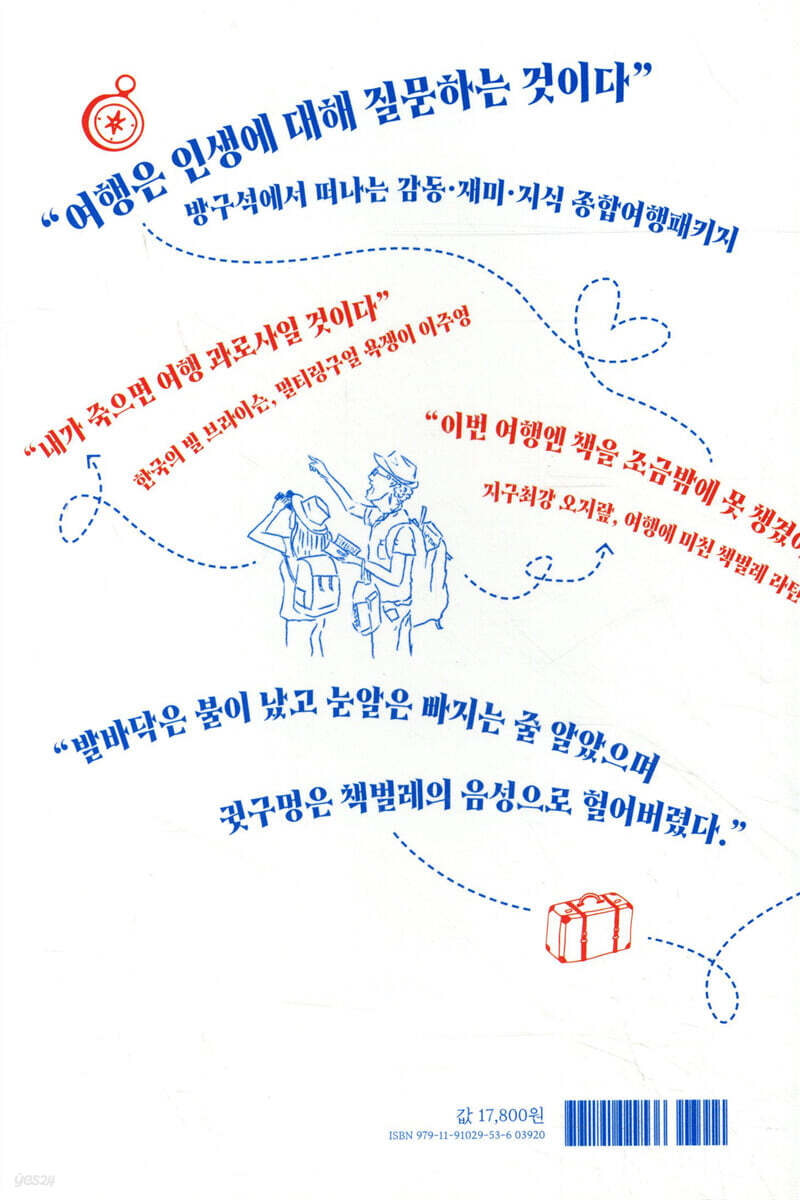 “여행은 인생에 대해 질문하는 것이다”
방구석에서 떠나는 감동·재미·지식 종합여행패키지
“내가 죽으면 여행 과로사일 것이다”
한국의 빌 브라이슨, 멀티링구얼 욕쟁이 이주영
“이번 여행엔 책을 조금밖에 못 챙겼어
지구최강 오지랖, 여행에 미친 책벌레 라탄
“발바닥은 불이 났고 눈알은 빠지는 줄 알았으며
귓구멍은 책벌레의 음성으로 헐어버렸다.”
값 17,800원
ISBN 979-11-91029-53-6 03920
yes24